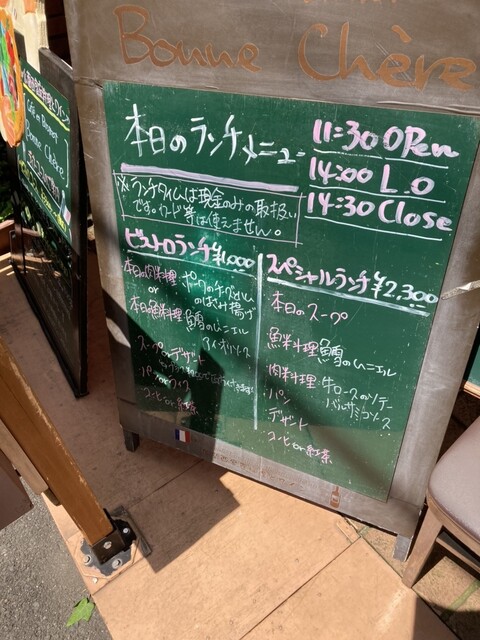 Bonne Chère
本日のランチメニュー
11:30 OPen
14:00 L.O
14:30 Close
※ランチタイムは現金のみの取扱い
です。カード等は使えません。
ビストロランチ¥1,000
本日の肉料理・ポークの
のはさみ揚げ
or
本日の魚料理・鱈のムニエル
スープorデザート
パンorライス
コーヒーor紅茶
スペシャルランチ¥2,300
本日のスープ
魚料理 鱈のムニエル
肉料理・牛ロースのソテー
バルサミコソース
パン
デザート
コーヒーor紅茶
Bonne Chère